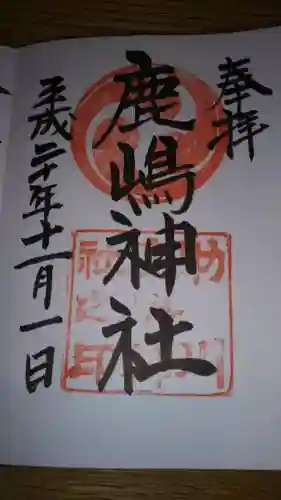 奉拝
鹿嶋神社
平成二十年十一月一日